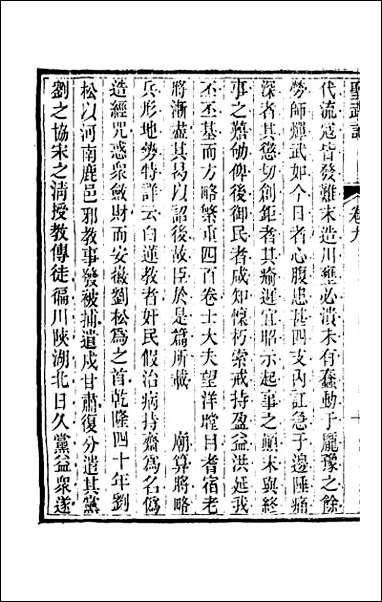 聖武記 卷九 十
代流寇皆發難末造川壅必潰未有蠢動于龐豫之餘
勞師輝武如今日者心腹患甚四支內訌急于邊陲痛
深者其懲切創鉅者其瘉遲宜昭示起事之顛末與終
事之艱劬俾後御民者咸知懍朽索戒持盈益洪延我
丕丕基而方略繁重四百卷士大夫望洋瞠目耆宿老
將漸盡其曷以詔後故臣於是篇所載 廟算將略
兵形地勢特詳云白蓮教者奸民假治病持齋爲名僞
造經咒惑衆斂財而安徽劉松爲之首乾隆四十年劉
松以河南鹿邑邪教事發被捕遣戍甘肅復分遣其黨
劉之協宋之清授教傳徒徧川陝湖北日久黨益衆遂